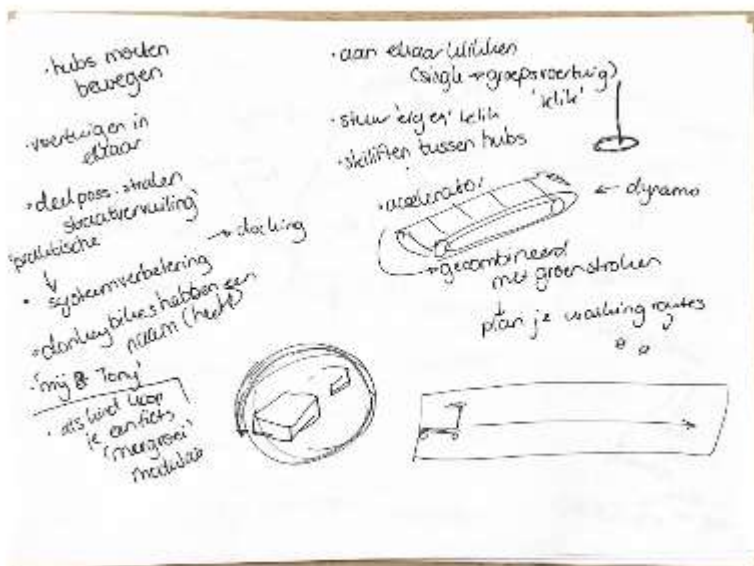 · hubs moeten
bewegen
· voertuigen in
elkaar
straatvervuiling
praktische
→ docking
· systeemverbetering
· donkey bikes hebben een
naam (hecht)
· 'mij & Tony'
· als kind koop
je een fiets
modulair
· aan elkaar klikken
(single → groepsvoertuig)
'klik'
· stuur 'ergens' klik
· skiliften tussen hubs
· accelerator
← dynamo
→ gecombineerd
met groenstroken
plan je walking routes